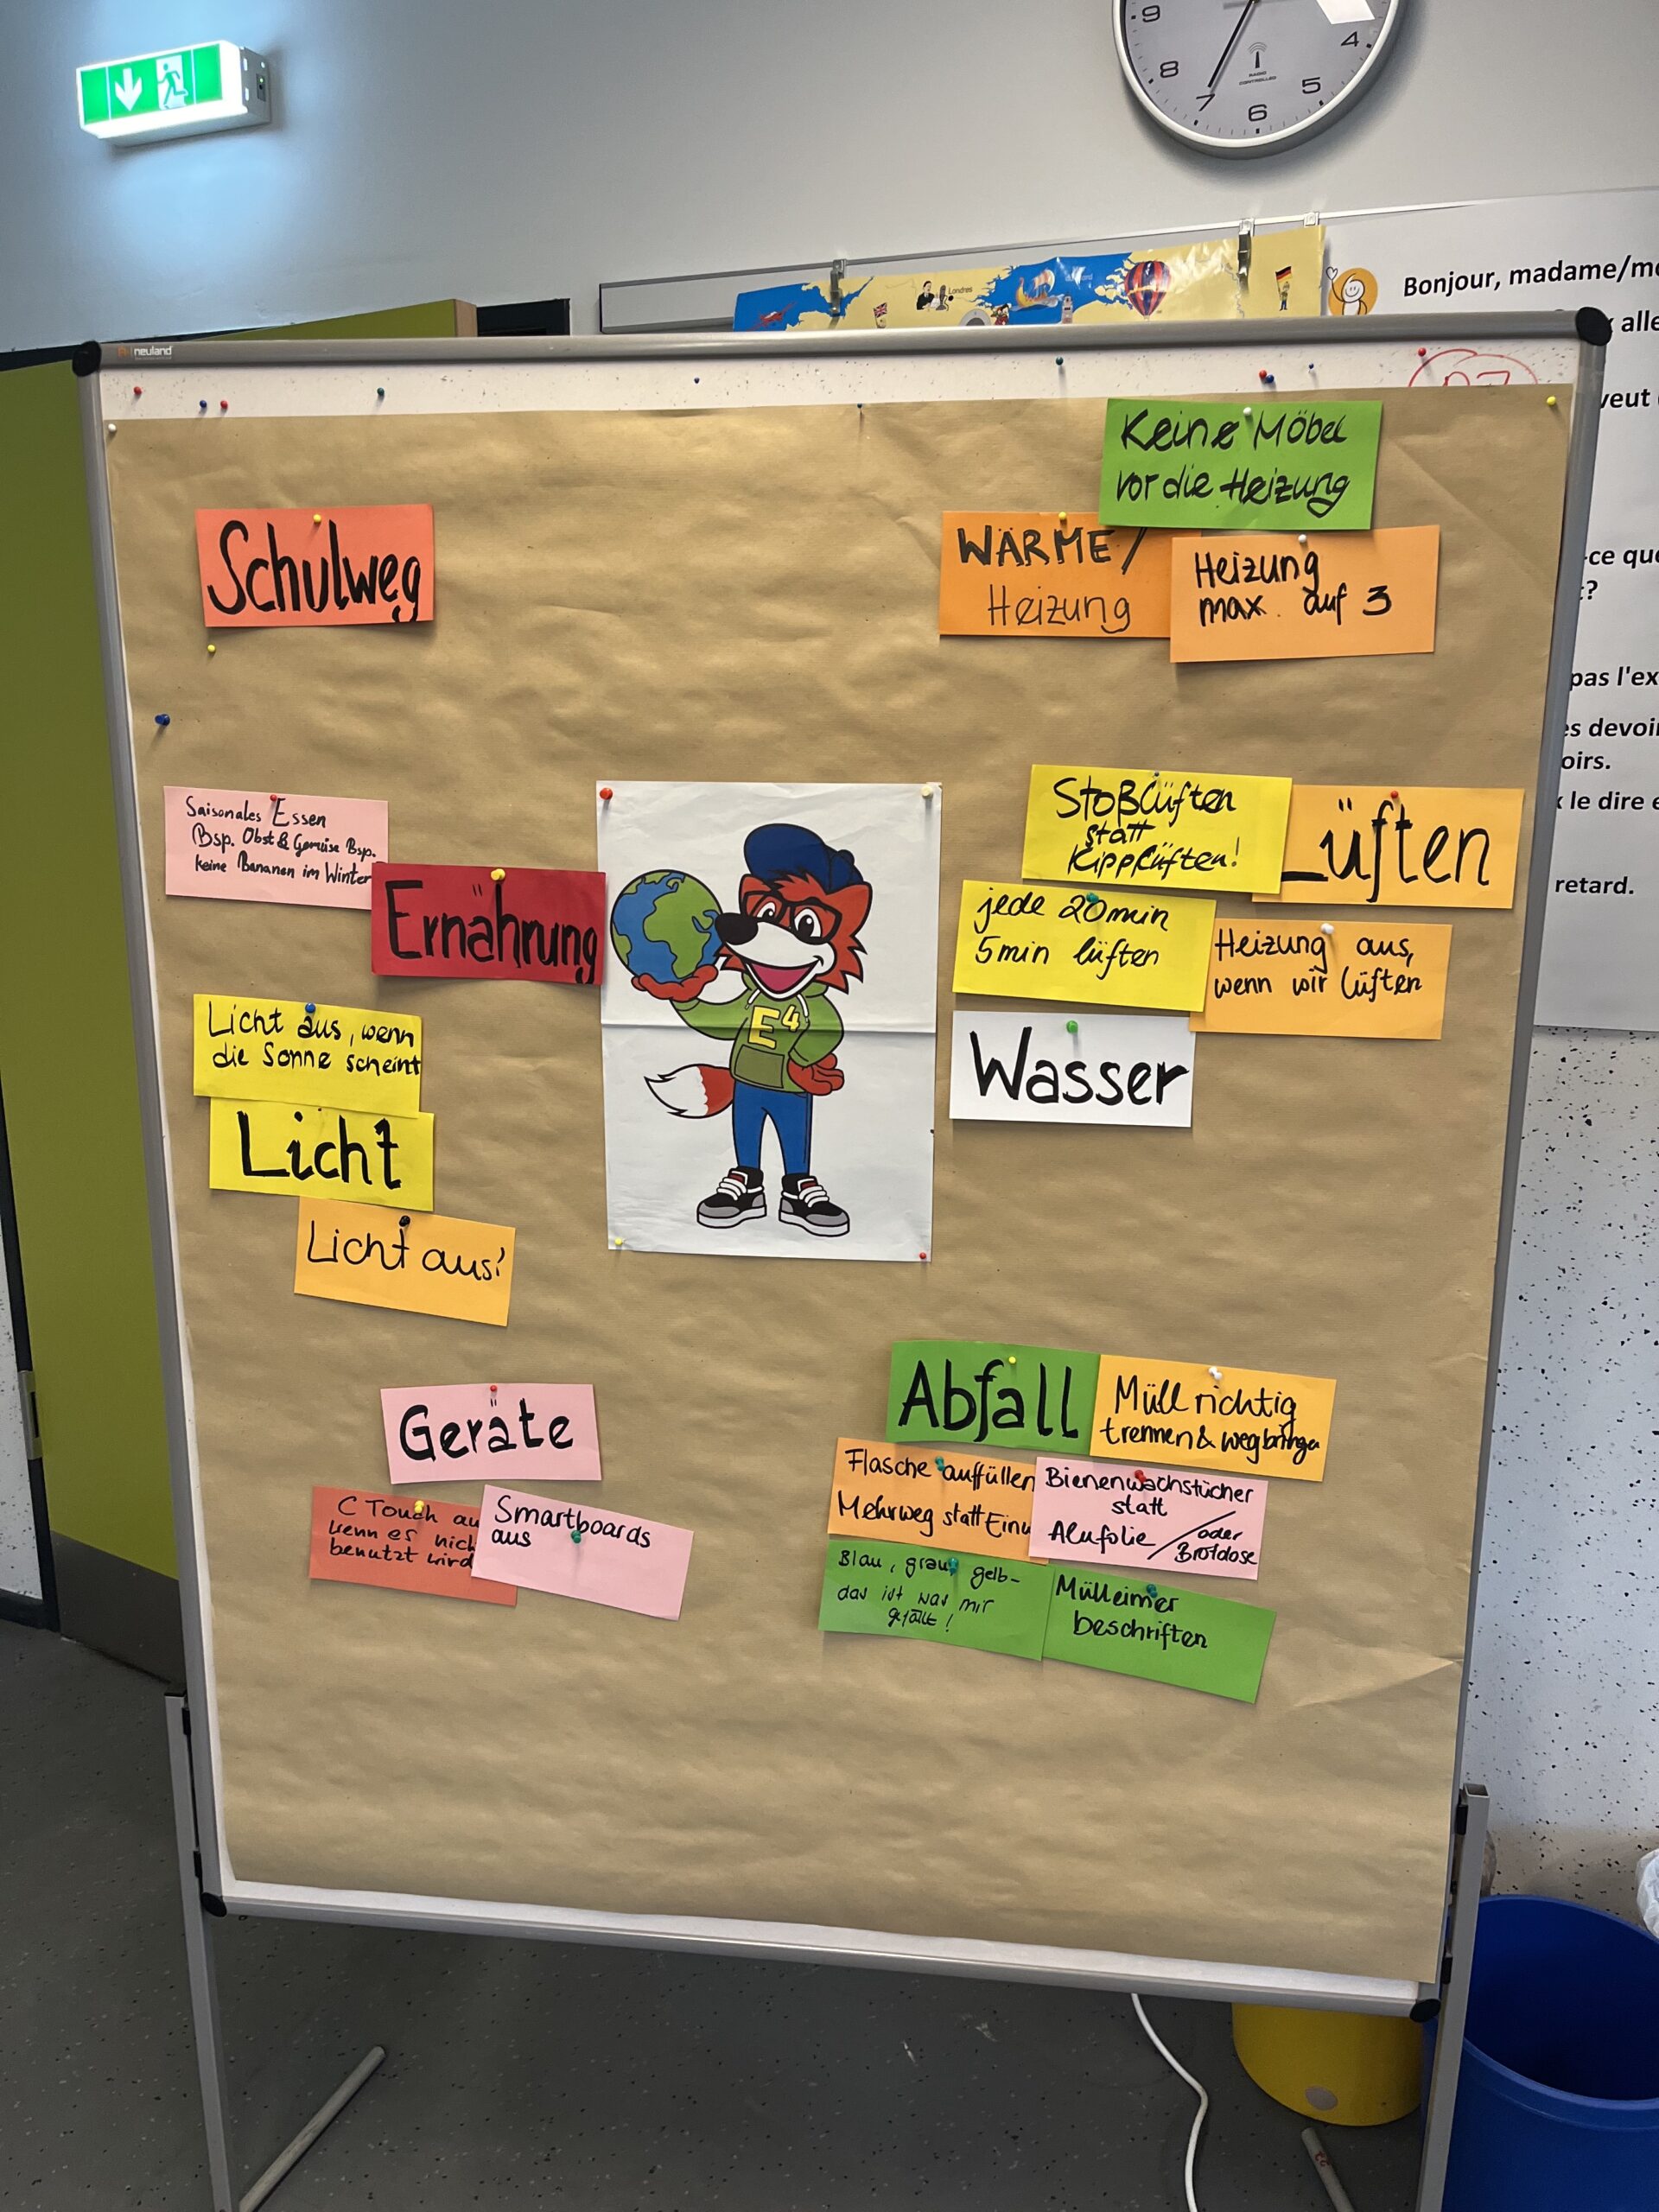 9
8
7
6
5
4
RADIO
CONTROLLED
Londres
Bonjour, madame/
alle
veut
-ce que
t?
pas l'ex
es devoir
oirs.
le dire
retard.
neuland
Keine Möbel
vor die Heizung
Schulweg
WÄRME /
Heizung
Heizung
max. auf 3
Saisonales Essen
Bsp. Obst & Gemüse Bsp.
keine Bananen im Winter
Ernährung
Stoßlüften
statt
Kipplüften!
Lüften
jede 20min
5min lüften
Heizung aus,
wenn wir lüften
E4
Wasser
Licht aus, wenn
die Sonne scheint
Licht
Licht aus!
Geräte
C Touch au
wenn es nich
benutzt wird
Smartboards
aus
Abfall
Müll richtig
trennen & wegbringen
Flasche auffüllen
Mehrweg statt Einw
Bienenwachstücher
statt
Alufolie / oder
Brotdose
Blau, grau, gelb-
das ist was mir
gefällt!
Mülleimer
beschriften